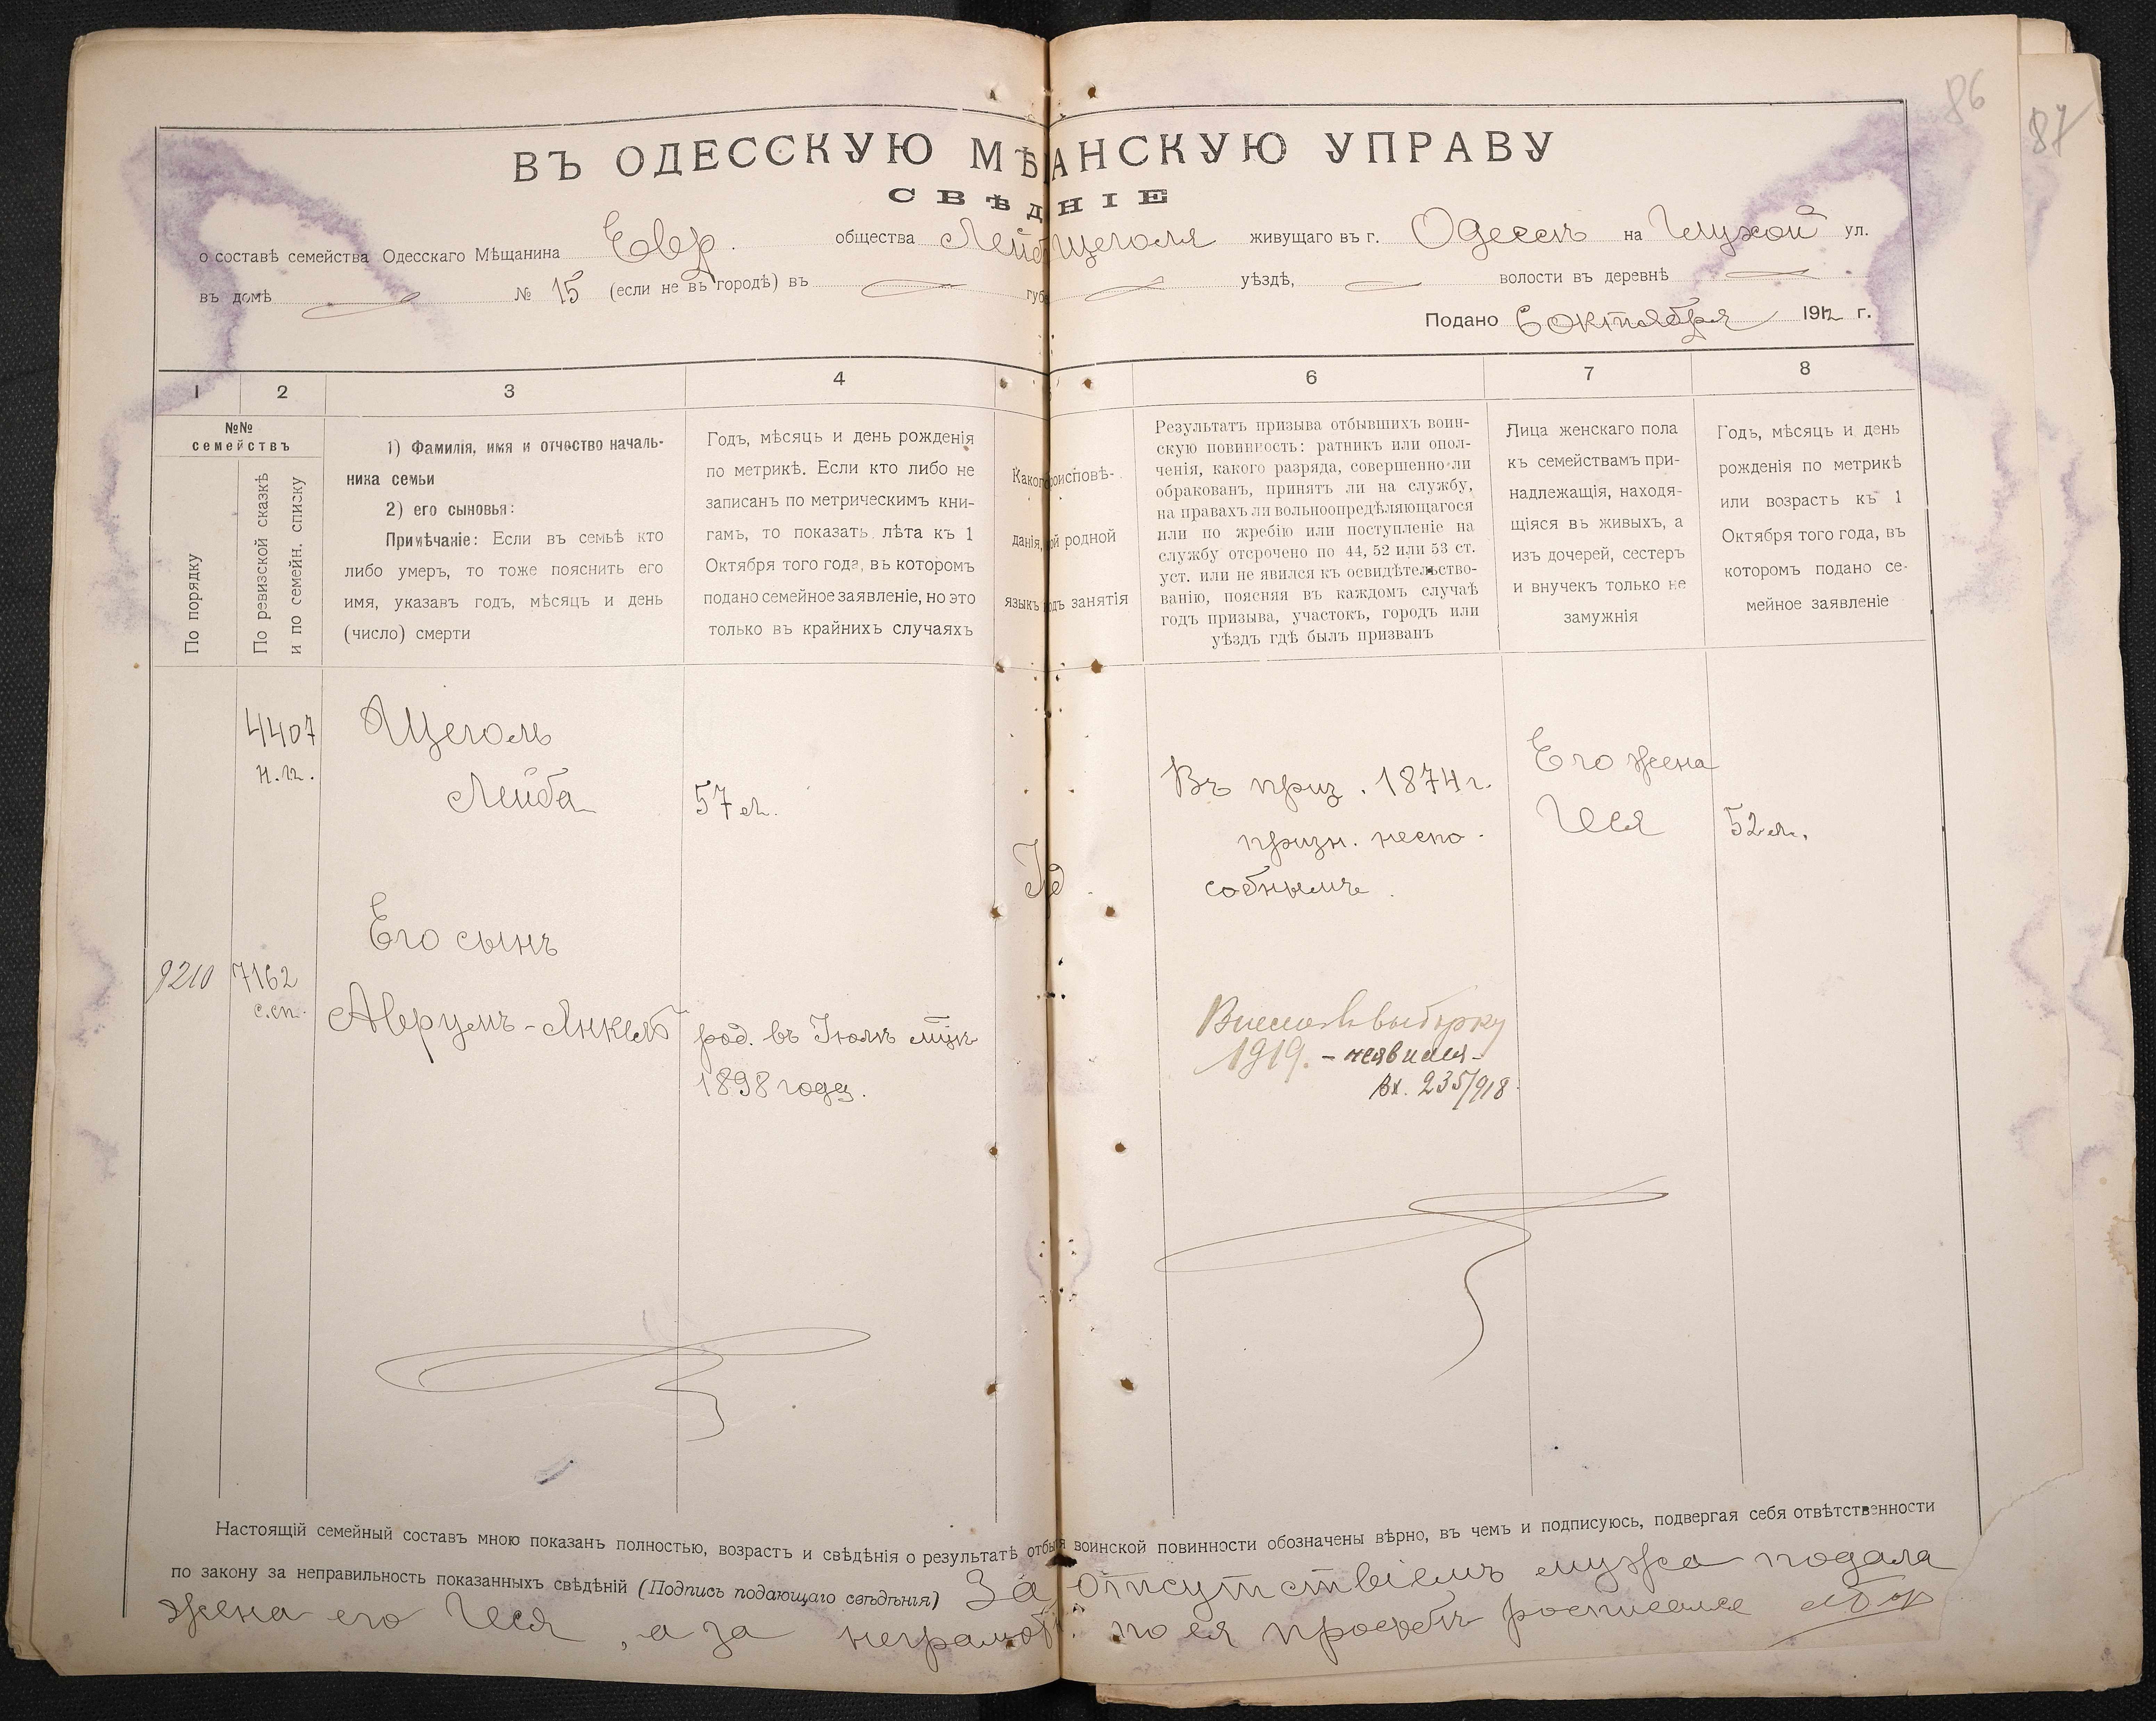 86
87
ВЪ ОДЕССКУЮ МѢ АНСКУЮ УПРАВУ
СВѢД НІЕ
о составѣ семейства Одесскаго Мѣщанина Евр. общества Лейб Щеголя живущаго въ г. Одессѣ на Глухой ул.
въ домѣ № 15 (если не въ городѣ) въ губ уѣздѣ, волости въ деревнѣ
Подано 6 октября 1912 г.
1 2 3 4 6 7 8
№№ семействъ
По порядку
По ревизской сказкѣ
и по семейн. списку
1) Фамилія, имя и отчество началь-
ника семьи
2) его сыновья:
Примѣчаніе: Если въ семьѣ кто
либо умеръ, то тоже пояснить его
имя, указавъ годъ, мѣсяцъ и день
(число) смерти
Годъ, мѣсяцъ и день рожденія
по метрикѣ. Если кто либо не
записанъ по метрическимъ кни-
гамъ, то показать лѣта къ 1
Октября того года, въ которомъ
подано семейное заявленіе, но это
только въ крайнихъ случаяхъ
Каког роисповѣ-
данія, ой родной
языкъ одъ занятія
Результатъ призыва отбывшихъ воин-
скую повинность: ратникъ или опол-
ченія, какого разряда, совершенно ли
обракованъ, принятъ ли на службу,
на правахъ ли вольноопредѣляющагося
или по жребію или поступленіе на
службу отсрочено по 44, 52 или 53 ст.
уст. или не явился къ освидѣтельство-
ванію, поясняя въ каждомъ случаѣ
годъ призыва, участокъ, городъ или
уѣздъ гдѣ былъ призванъ
Лица женскаго пола
къ семействамъ при-
надлежащія, находя-
щіяся въ живыхъ, а
изъ дочерей, сестеръ
и внучекъ только не
замужнія
Годъ, мѣсяцъ и день
рожденія по метрикѣ
или возрастъ къ 1
Октября того года, въ
которомъ подано се-
мейное заявленіе
4407
Щеголь
Лейба 57 л.
Въ приз. 1874 г.
призн. неспо-
собнымъ.
Его жена
Геся 52 л.
Его сынъ
9210 7162
с.сп.
Аврумъ-Янкель род. въ Іюлѣ мцѣ
1898 года.
Внесенъ в выборку
1919. - неявился -
Вх. 235/918
Настоящій семейный составъ мною показанъ полностью, возрастъ и свѣдѣнія о результатѣ отбы я воинской повинности обозначены вѣрно, въ чемъ и подписуюсь, подвергая себя отвѣтственности
по закону за неправильность показанныхъ свѣдѣній (Подпись подающаго свѣдѣнія) За отсутствіемъ мужа подала
жена его Геся, а за неграмот. по ея просьбѣ росписался